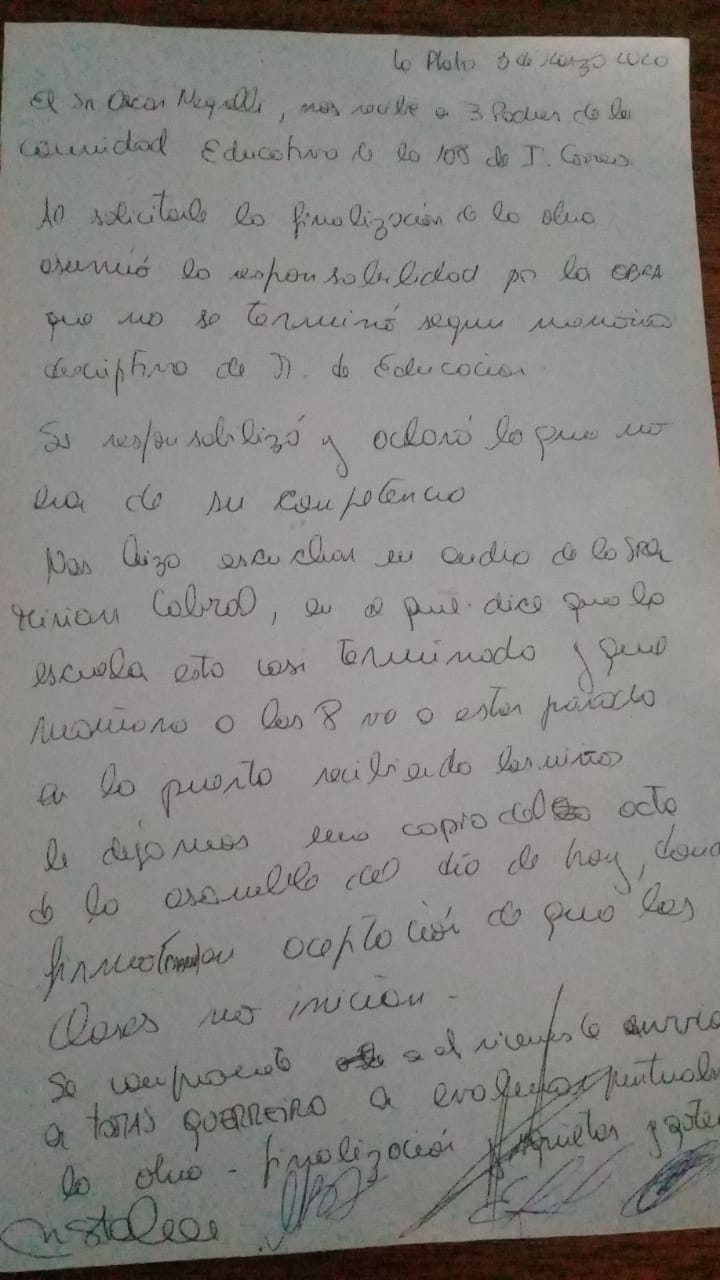 La Plata 3 de Marzo 2020
El Sr Oscar Negrelli, nos recibe a 3 Padres de la
comunidad Educativa de la 108 de T. Gomez
Al solicitarle la finalización de la obra
asumió la responsabilidad por la OBRA
que no se terminó segun memoria
descriptiva de D. de Educacion.
Se responsabilizó y aclaró lo que no
era de su competencia
Nos hizo escuchar un audio de la SRA
Mirian Cabral, en el que dice que la
escuela esta casi terminada y que
mañana a las 8 va a estar parada
en la puerta recibiendo los niños
le dejamos una copia del acta
de la asamblea del dia de hoy, donde
aceptación de que las
clases no inician -
Se compromete a
a TOMAS GUERREIRO a evaluar puntual
la obra - finalización